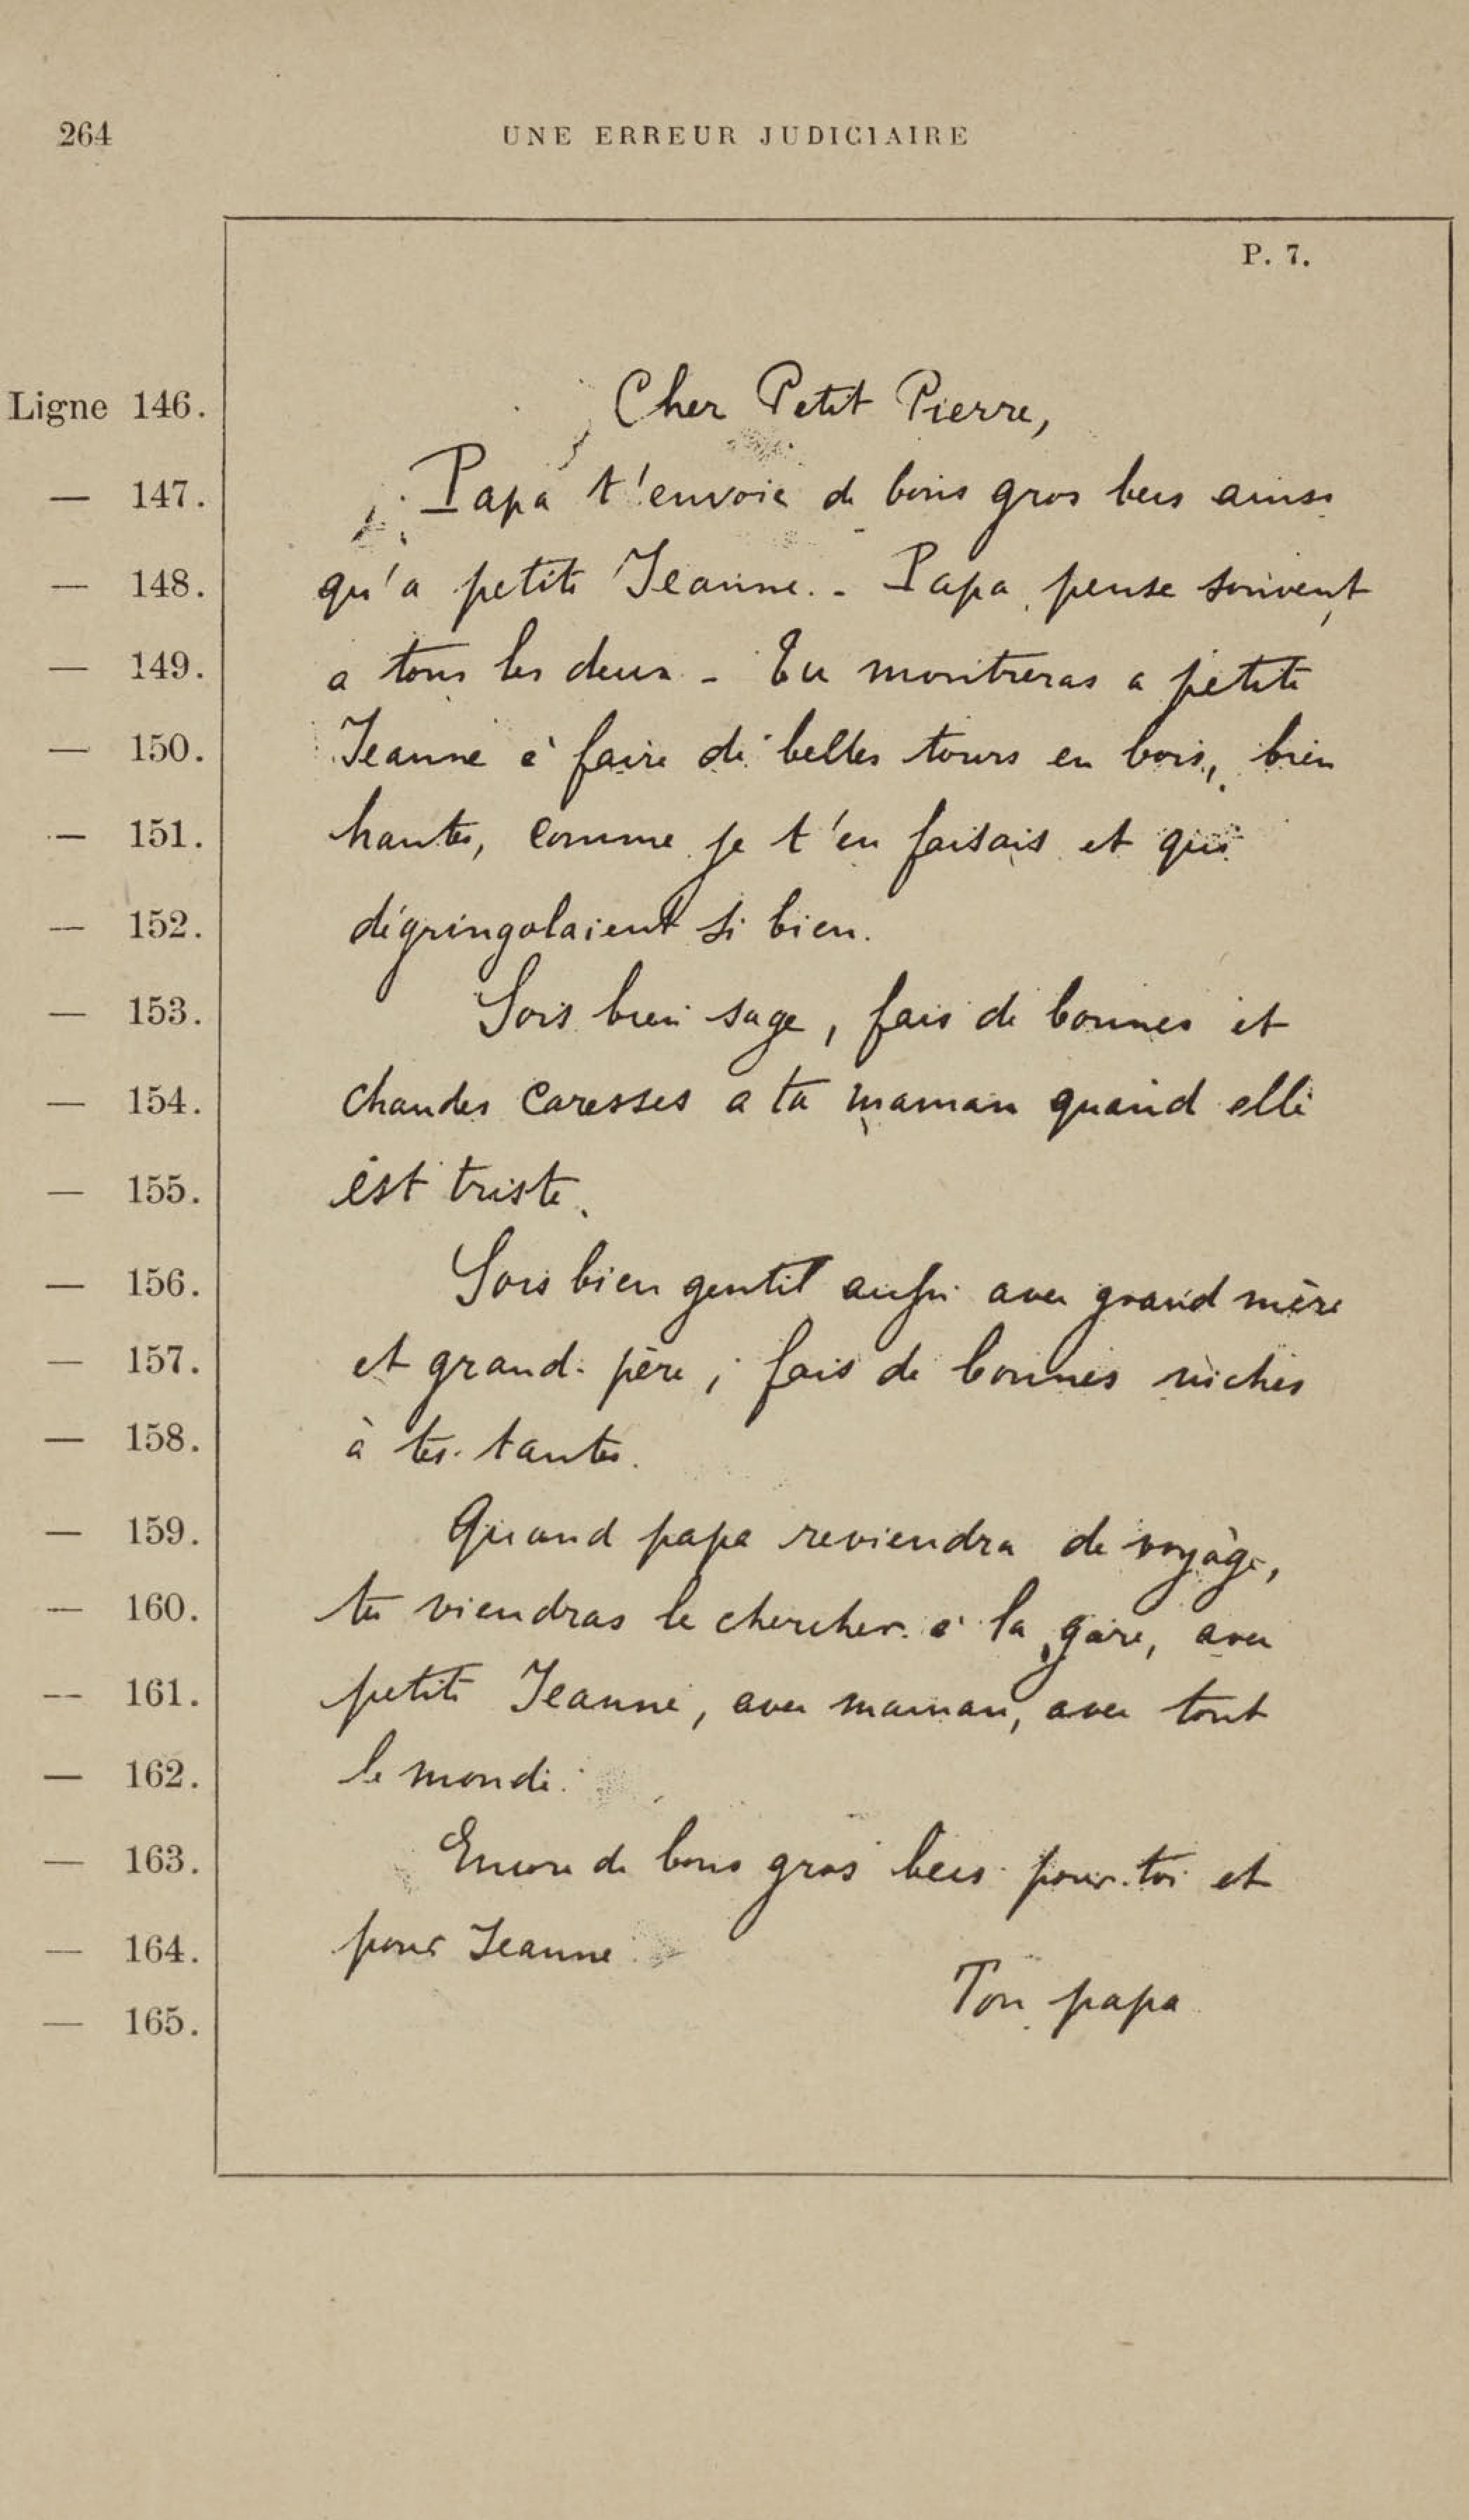 264 UNE ERREUR JUDICIAIRE
P. 7.
Ligne 146. Cher Petit Pierre,
— 147. Papa t'envoie de bons gros becs ainsi
— 148. qu'a petite Jeanne. - Papa pense souvent
— 149. a tous les deux - Tu montreras a petite
— 150. Jeanne à faire de belles tours en bois, bien
— 151. hautes, comme je t'en faisais et qui
— 152. dégringolaient si bien.
— 153. Sois bien sage, fais de bonnes et
— 154. chaudes caresses a ta maman quand elle
— 155. est triste.
— 156. Sois bien gentil aussi avec grand mère
— 157. et grand-père ; fais de bonnes niches
— 158. à tes tantes.
— 159. Quand papa reviendra de voyage,
— 160. tu viendras le chercher à la gare, avec
— 161. petite Jeanne, avec maman, avec tout
— 162. le monde.
— 163. Encore de bons gros becs pour toi et
— 164. pour Jeanne
— 165. Ton papa